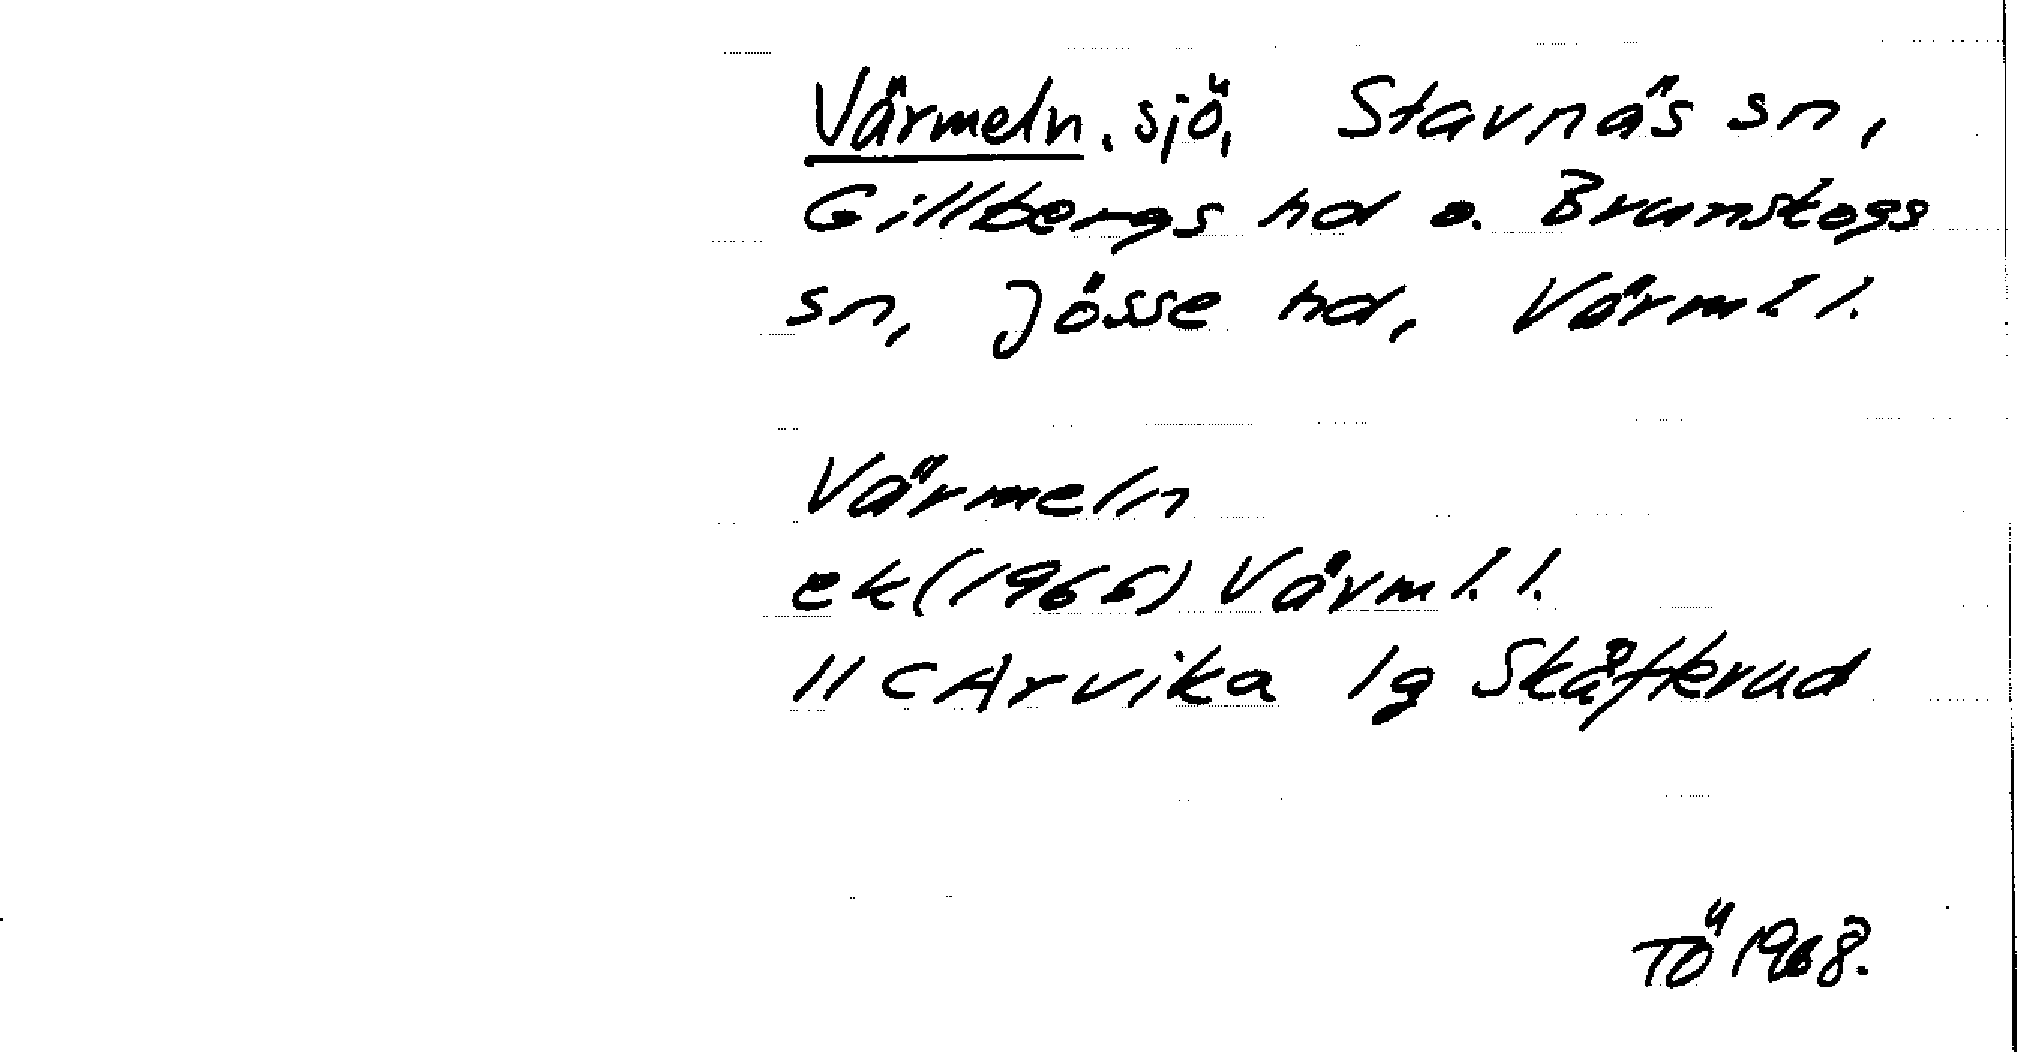 Värmeln, sjö, Stavnäs sn,
Gillbergs hd o. Brunskogs
sn, Jösse hd, Värml. l.
Värmeln
ek(1966) Värml. l.
11 C Arvika 1g Skåfterud
TÖ 1968.